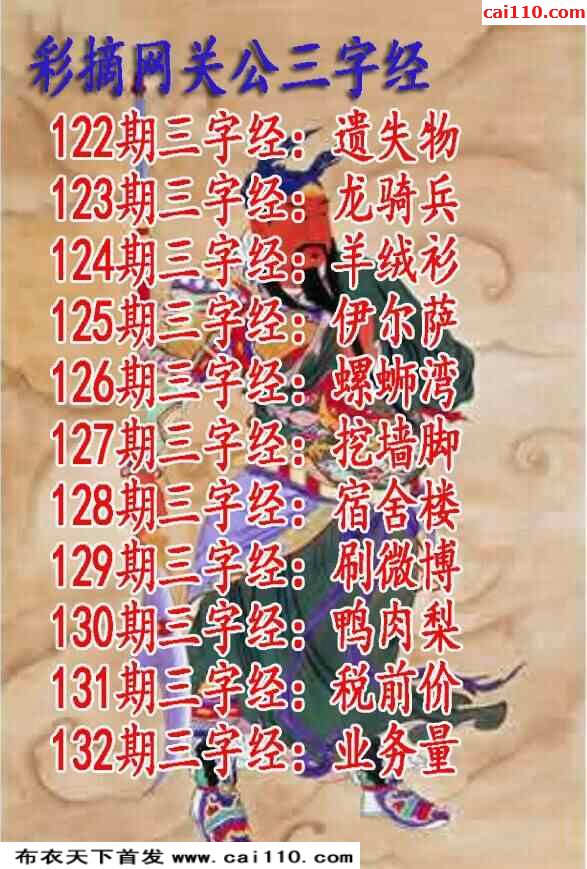 cai110.com
彩摘网关公三字经
122期三字经：遗失物
123期三字经：龙骑兵
124期三字经：羊绒衫
125期三字经：伊尔萨
126期三字经：螺蛳湾
127期三字经：挖墙脚
128期三字经：宿舍楼
129期三字经：刷微博
130期三字经：鸭肉梨
131期三字经：税前价
132期三字经：业务量
布衣天下首发 www.cai110.com